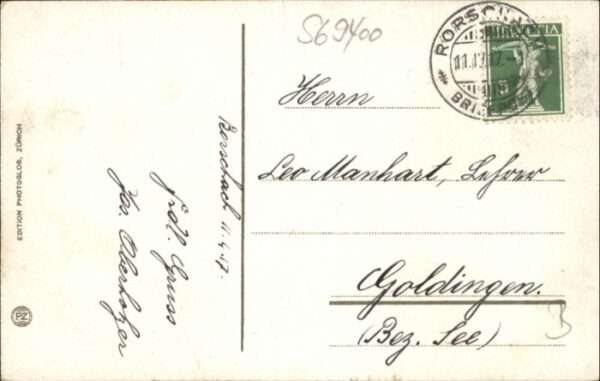 S69400
RORSCHACH
HELVETIA
BRIEF
Herrn
Leo Manhart, Lehrer
Goldingen.
(Bez. See)
3
Rorschach 11.4.17.
frdl. Gruss
Jos. Oberholzer
EDITION PHOTOGLOB, ZÜRICH
PZ